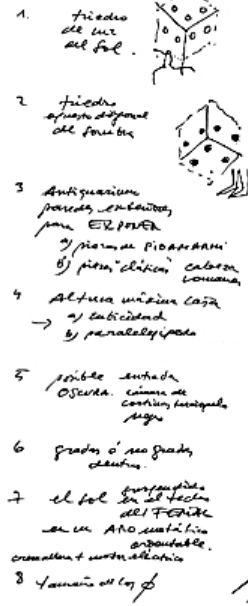 1. triedro
de luz
del Sol.
2 triedro
opuesto diagonal
del sombra
3 Antiquarium
paredes
para EXPONER
a) piezas de
b) piezas "clásicas" cabeza
romana
4 Altura máxima caja
→ a) cubicidad
b) paralelepípedo
5 posible entrada
OSCURA. cámara de
cortinas terciopelo
negro
6 gradas ó no gradas
dentro.
7 el sol suspendido
en el techo
del
en un ARO metálico
orientable.
cremallera + motor eléctrico
8 Tamaño del Ø